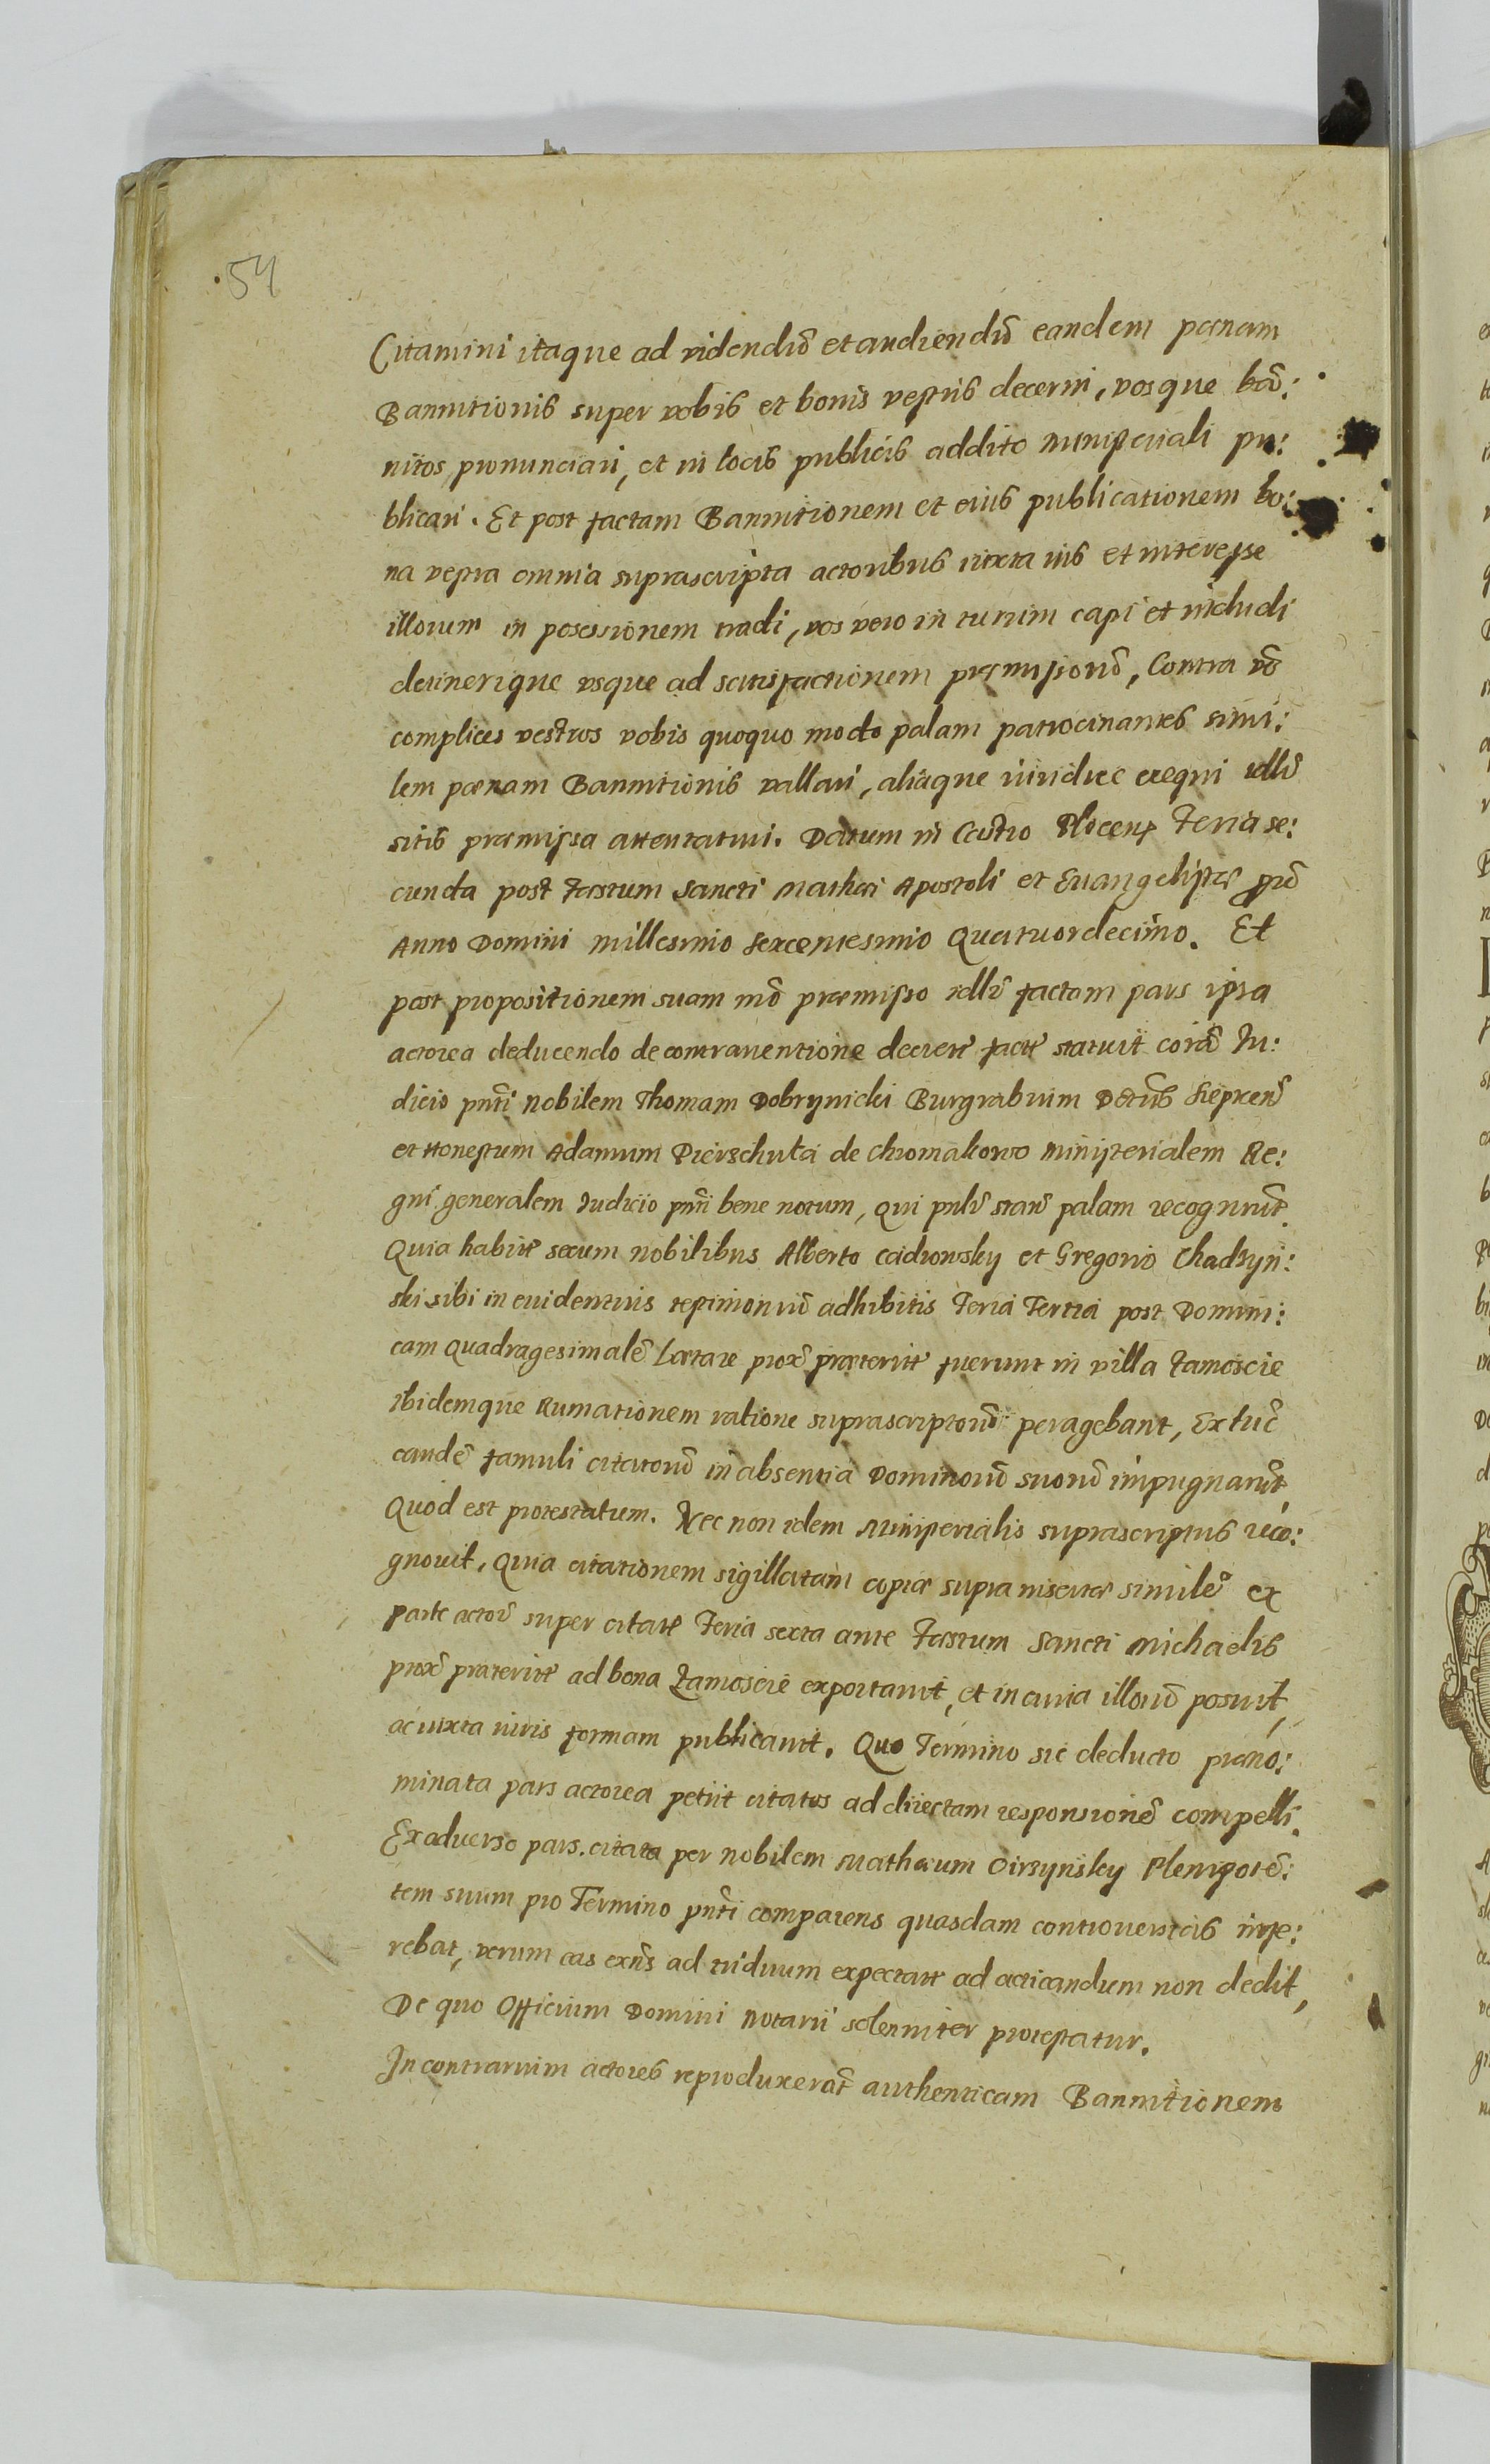 54
Citamini itaque ad videndũ et audiendũ eandem pœnam
Bannitionis super vobis et bonis vestris decerni, vosque bã:
nitos pronunciari, et in locis publicis addito ministeriali pu:
blicari. Et post factam Bannitionem et eius publicationem bo:
na vestra omnia suprascripta actoribus iuxta ius et interesse
illorum in posessionem tradi, vos vero in turrim capi et includi
detinerique vsque ad satisfactionem præmissorũ, Contra võ
complices vestros vobis quoquo modo palam patrocinantes simi:
lem pœnam Bannitionis vallari, aliaque iuridice exequi
sitis præmissa attentaturi. Datum in Castro Plocens Feria se:
cunda post Festum Sancti Mathæi Apostoli et Euangelistæ
Anno Domini millesimo sexcentesimo Quatuordecimo. Et
post propositionem suam mõ præmisso factam pars ipsa
actorea deducendo de contrauentione decreti facti statuit corã Iu:
dicio pñti Nobilem Thomam Dobrzynicki Burgrabium
et Honestum Adamum Pierschuta de Chromakowo Ministerialem Re:
gni generalem Iudicio pñti bene notum, qui palam recognorũt
Quia habitis secum nobilibus Alberto et Gregorio Chadzyn:
ski sibi in euidentius testimoniũ adhibitis Feria Tertia post Domini:
cam Quadragesimalẽ Lætare prox præterit fuerunt in villa Zamoscie
ibidemque Rumationem ratione suprascriptorũ peragebant, Ex tũc
eandẽ famuli citatorũ in absentia Dominorũ suorũ impugnarũt,
Quod est protestatum. Nec non idem Ministerialis suprascriptus reco:
gnouit, Quia citationem sigillatam copiæ supra insertæ similẽ ex
parte actorũ super citatis Feria sexta ante Festum Sancti Michaelis
prox præterit ad bona Zamoscie exportauit, et in curia illorũ posuit,
ac iuxta iuris formam publicauit. Quo Termino sic deducto præno:
minata pars actorea petiit citatos ad directam responsionẽ compelli.
Ex aduerso pars citata per Nobilem Mathæum Cirzynsky Plenipotẽ:
tem suum pro Termino pñti comparens quasdam controuersias infe:
rebat, verum eas ad triduum expectat ad acticandum non dedit,
De quo Officium Domini Notarii solenniter protestatur.
In contrarium actores reproduxerũt authenticam Bannitionem